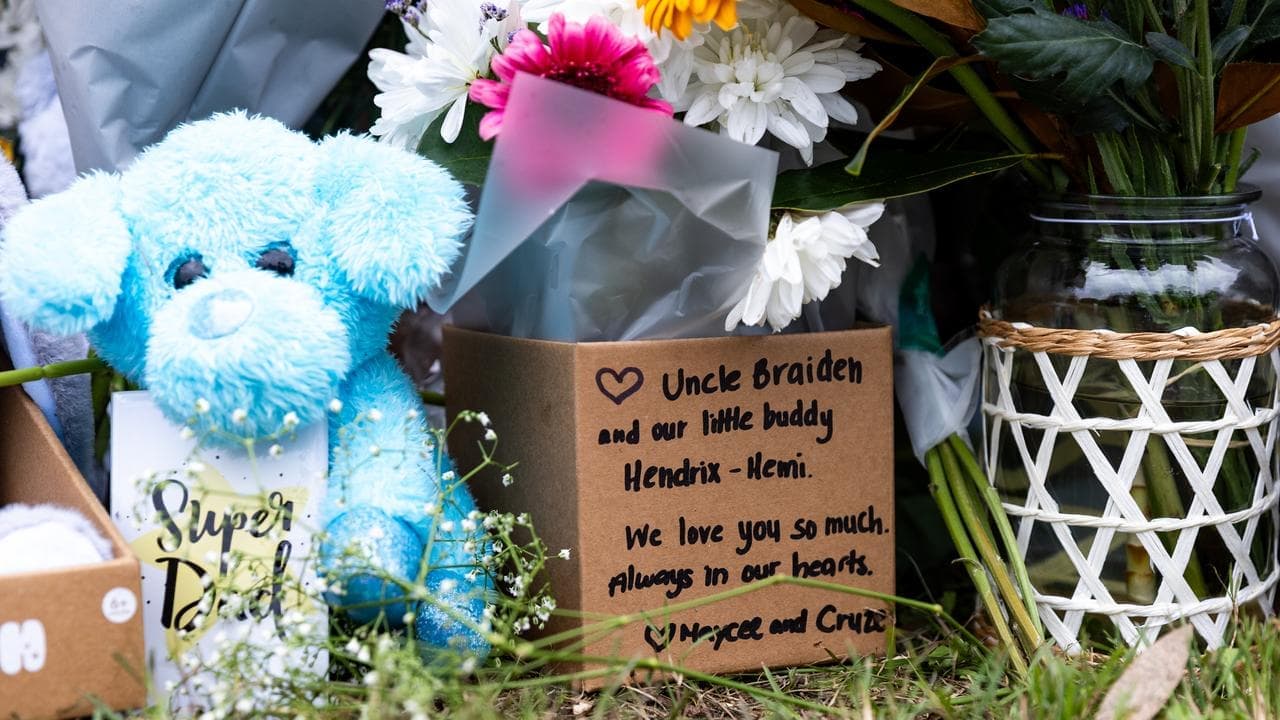 Uncle Braiden
and our little buddy
Hendrix - Hemi.
We love you so much.
Always in our hearts.
Maycee and Cruze
Super
Dad
6+
H